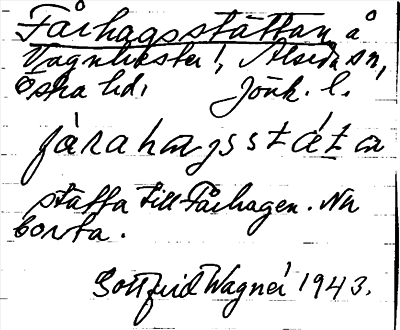 Fårhagsstättan å
Vagnhester!, Alseda sn,
Östra hd. Jönk. l.
fårahagsstä́ta
stätta till Fårhagen. Nu
borta.
Gottfrid Wagner 1943.